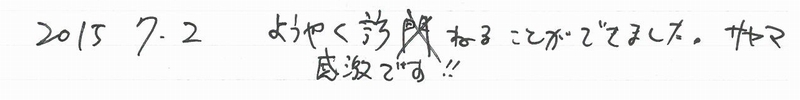 2015 7.2 ようやく訪ねることができました。サヤマ
感激です!!